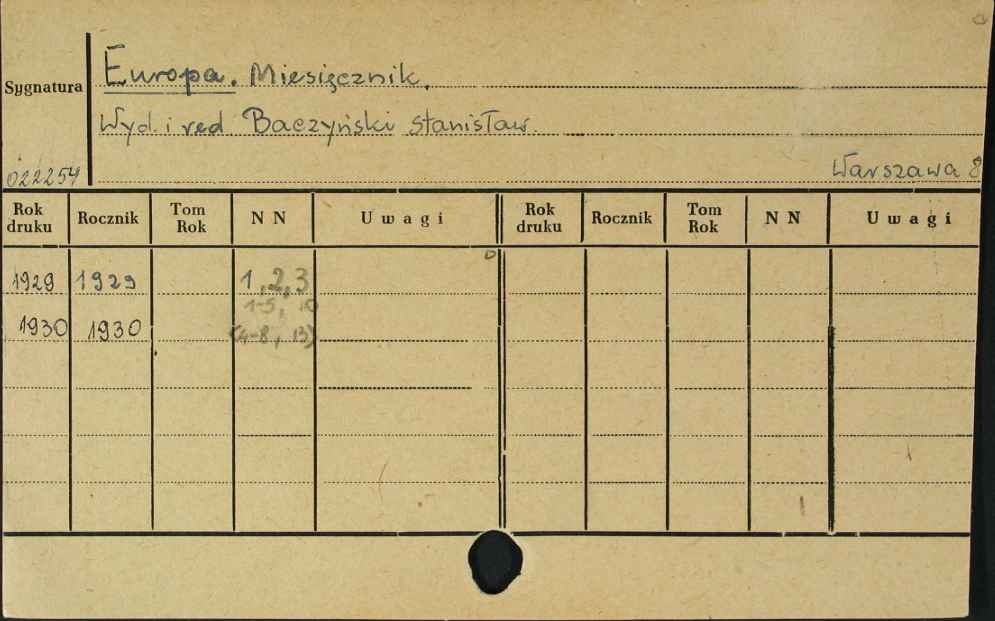 Europa. Miesięcznik.
Sygnatura
Wyd. i red Baczyński Stanisław.
022254
Warszawa 8
Rok druku Rocznik Tom Rok N N Uwagi Rok druku Rocznik Tom Rok N N Uwagi
1929 1929 1, 2, 3
1-5, 10
1930 1930 (4-8, 13)